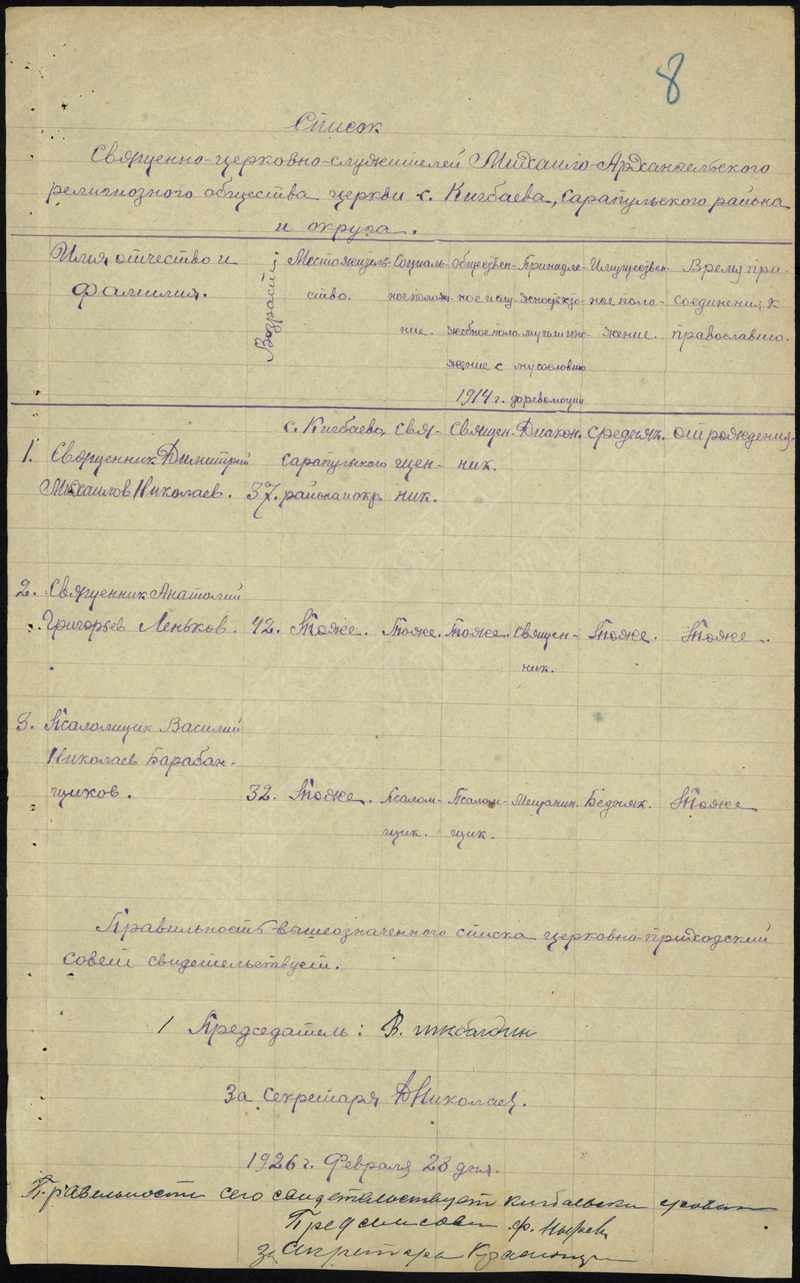 8
Список
Священно-церковно-служителей Михаило-Архангельского
религиозного общества церкви с. Кигбаева, Сарапульского района
и округа.
Имя, отчество и фамилия.
Возраст
Местожительство.
Социальное положение.
Общественное и служебное положение с 1914 г.
Принадлежность к
сословию до революции
Имущественное положение.
Время присоединения к православию.
1. Священник Димитрий
Михаилов Николаев. 37.
с. Кигбаева, Сарапульского района и окр.
Священник.
Священник.
Диакон.
Середняк.
От рождения.
2. Священник Анатолий
Григорьев Леньков. 42. Тоже. Тоже. Тоже. Священник. Тоже. Тоже.
3. Псаломщик Василий
Николаев Барабанщиков. 32. Тоже. Псаломщик. Псаломщик. Мещанин. Бедняк. Тоже
Правильность вышеозначенного списка церковно-приходский
совет свидетельствует.
Председатель: В.
За секретаря Д Николаев.
1926 г. Февраля 23 дня.
Правельность сего свидетельствует
Пред
за Секретаря